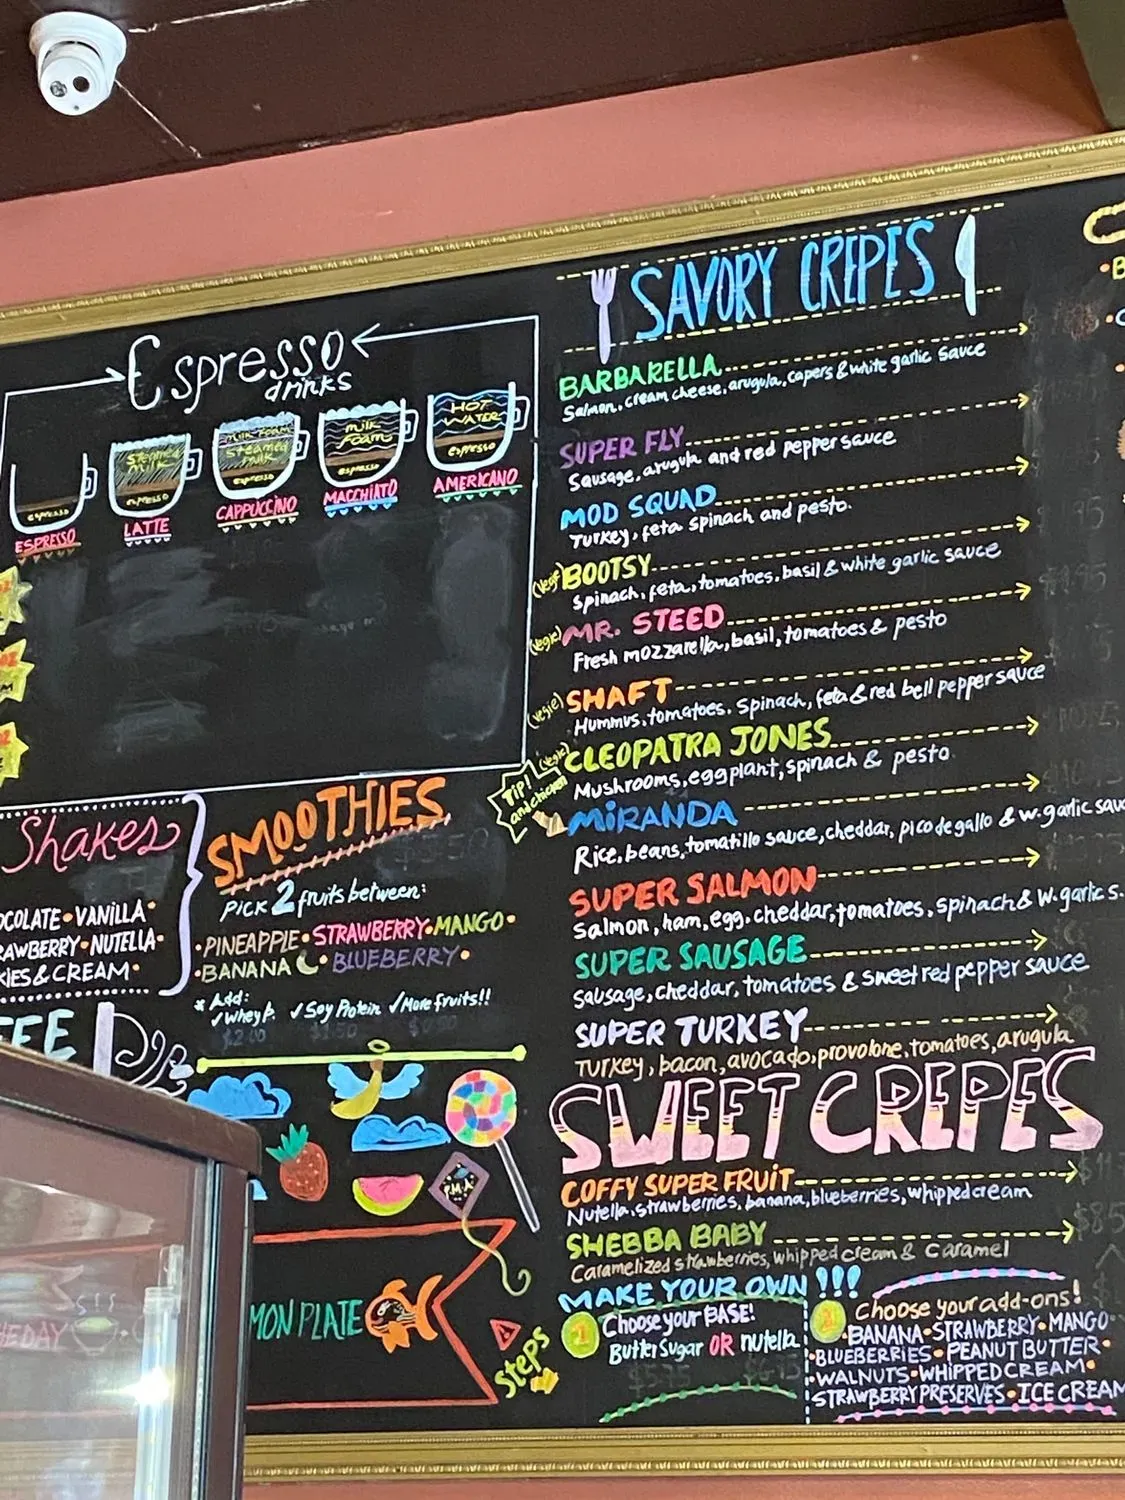 Espresso
drinks
espresso
ESPRESSO
Steamed
Milk
espresso
LATTE
Milk Foam
Steamed
Milk
espresso
CAPPUCCINO
Milk
Foam
espresso
MACCHIATO
HOT
WATER
espresso
AMERICANO
Shakes
OCOLATE • VANILLA •
RAWBERRY • NUTELLA •
KIES & CREAM •
SMOOTHIES
Pick 2 fruits between:
• PINEAPPLE • STRAWBERRY • MANGO •
• BANANA • BLUEBERRY •
* Add:
✓Whey P. ✓Soy Protein ✓More fruits!!
P.M.A.
MON PLATE
HEDAY
SAVORY CREPES
BARBARELLA
Salmon, cream cheese, arugula, capers & white garlic sauce
SUPER FLY
Sausage, arugula and red pepper sauce
MOD SQUAD
Turkey, feta spinach and pesto.
(Vegie) BOOTSY
Spinach, feta, tomatoes, basil & white garlic sauce
(Vegie) MR. STEED
Fresh mozzarella, basil, tomatoes & pesto
(Vegie) SHAFT
Hummus, tomatoes, spinach, feta & red bell pepper sauce
(Vegie) CLEOPATRA JONES
Mushrooms, eggplant, spinach & pesto
TIP!
and chicken
MIRANDA
Rice, beans, tomatillo sauce, cheddar, pico de gallo & w. garlic sauc
SUPER SALMON
Salmon, ham, egg, cheddar, tomatoes, spinach & w. garlic s.
SUPER SAUSAGE
Sausage, cheddar, tomatoes & sweet red pepper sauce
SUPER TURKEY
Turkey, bacon, avocado, provolone, tomatoes, arugula
SWEET CREPES
COFFY SUPER FRUIT
Nutella, strawberries, banana, blueberries, whipped cream
SHEBBA BABY
Caramelized strawberries, whipped cream & Caramel
MAKE YOUR OWN !!!
Steps
1 Choose your BASE!
Butter Sugar OR nutella
$5.75
2 Choose your add-ons!
• BANANA • STRAWBERRY • MANGO
• BLUEBERRIES • PEANUT BUTTER •
• WALNUTS • WHIPPED CREAM •
STRAWBERRY PRESERVES • ICE CREAM